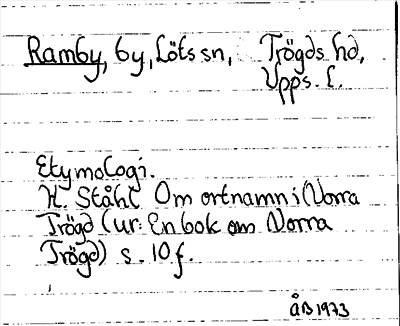 Ramby, by, Löts sn, Trögds hd,
Upps. l.
Etymologi.
H. Ståhl Om ortnamn i Norra
Trögd (ur: En bok om Norra
Trögd) s. 10 f.
ÅB 1973